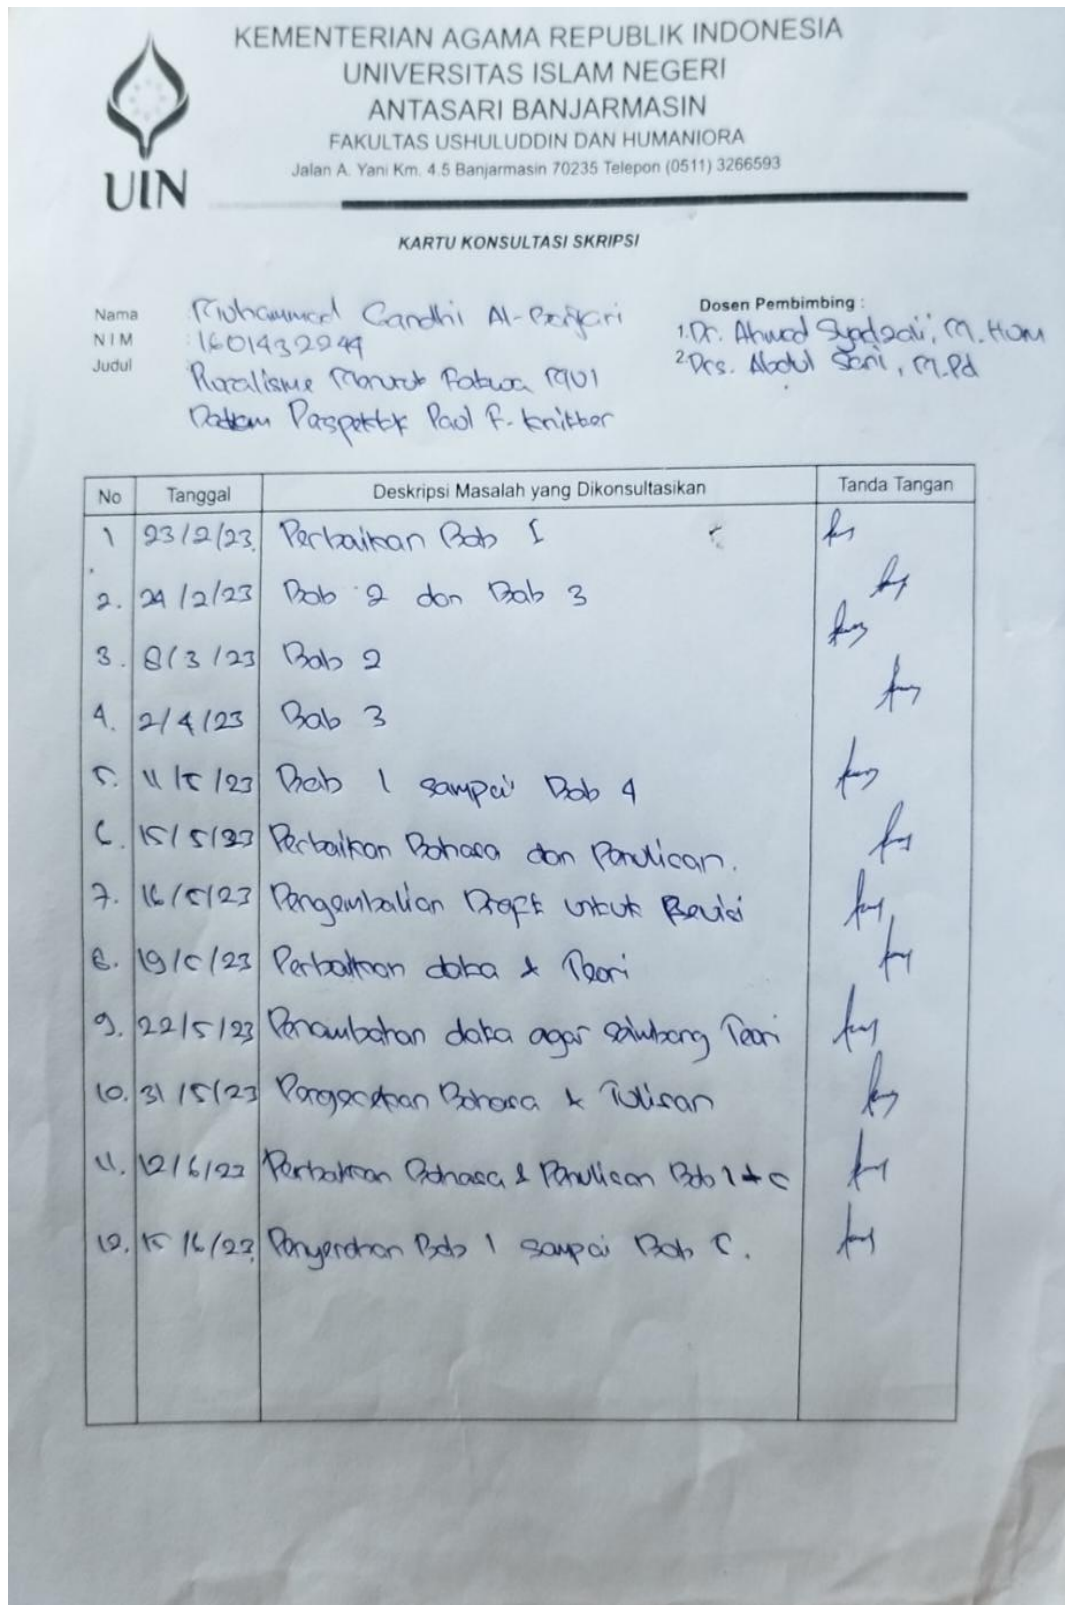 KEMENTERIAN AGAMA REPUBLIK INDONESIA
UNIVERSITAS ISLAM NEGERI
ANTASARI BANJARMASIN
FAKULTAS USHULUDDIN DAN HUMANIORA
Jalan A. Yani Km. 4.5 Banjarmasin 70235 Telepon (0511) 3266593
UIN
KARTU KONSULTASI SKRIPSI
Nama : Muhammad Gandhi Al-Banjari
NIM : 1601432244
Judul : Pluralisme Menurut Fatwa MUI
Dalam Perspektif Paul F. Knitter
Dosen Pembimbing :
1. Dr. Ahmad Syadzali, M. Hum
2 Drs. Abdul Sani, M.Pd
No Tanggal Deskripsi Masalah yang Dikonsultasikan Tanda Tangan
1 23/2/23 Perbaikan Bab I
2. 24/2/23 Bab 2 dan Bab 3
3. 8/3/23 Bab 2
4. 2/4/23 Bab 3
5. 11/5/23 Bab 1 sampai Bab 4
6. 15/5/23 Perbaikan Bahasa dan Penulisan.
7. 16/5/23 Pengembalian Draft untuk Revisi
8. 19/5/23 Perbaikan data & Teori
9. 22/5/23 Penambahan data agar seimbang Teori
10. 31/5/23 Pengecekan Bahasa & Tulisan
11. 12/6/23 Perbaikan Bahasa & Penulisan Bab 1 + 5
12. 15/6/23 Penyerahan Bab 1 sampai Bab 5.